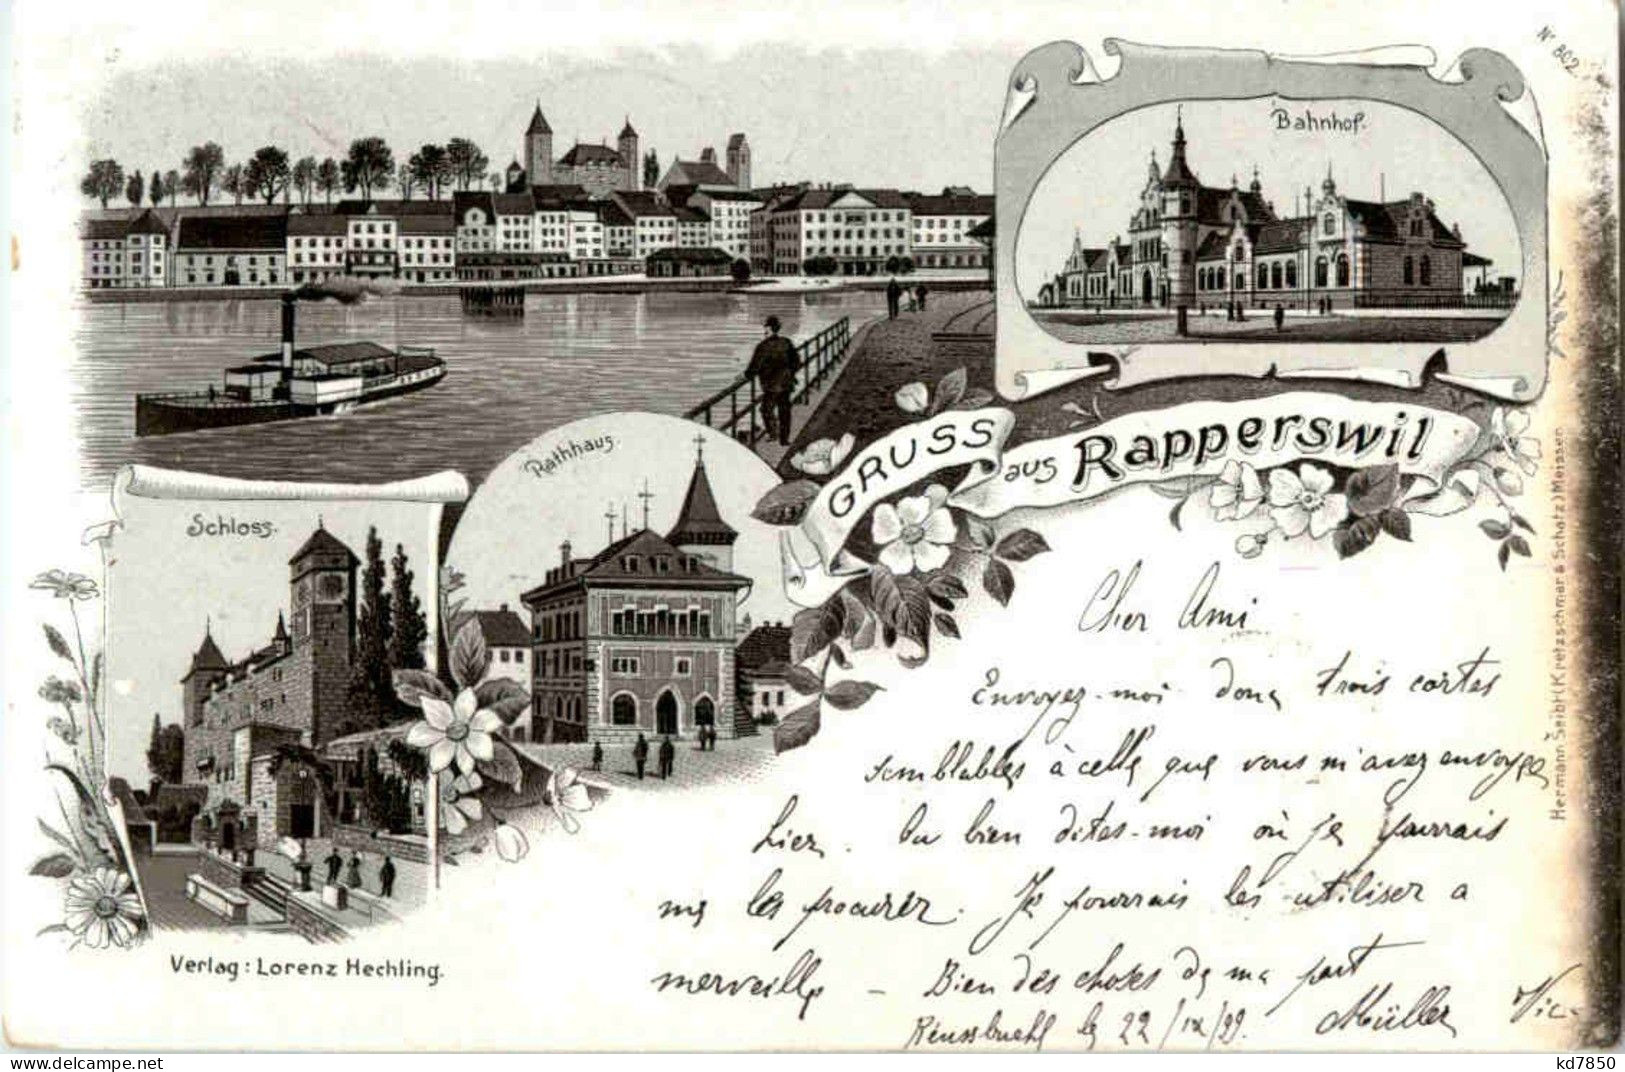 Nº 802
Bahnhof.
GRUSS
aus Rapperswil
Rathhaus.
Schloss.
Hermann Seibt (Kretzschmar & Schatz) Meissen
Cher Ami
Envoyez-moi donc trois cartes
semblables à celle que vous m'avez envoyée
hier. Ou bien dites-moi où je pourrais
me les procurer. Je pourrais les utiliser a
merveille – Bien des choses de ma part
Reussbuehl le 22/IX/99. Müller Vic.
Verlag: Lorenz Hechling.
kd7850